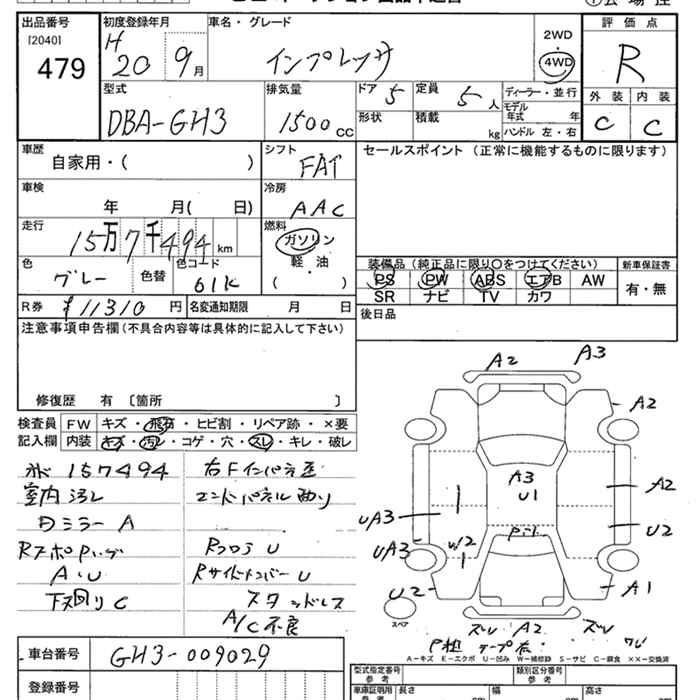 出品番号
[2040]
479
初度登録年月
H 20年 9月
車名・グレード
インプレッサ
2WD
4WD
評価点
R
外装
内装
C
C
型式
DBA-GH3
排気量
1500 CC
ドア 5
定員 5 人
形状
積載 kg
ディーラー・並行
モデル年式 年
ハンドル 左・右
車歴
自家用・( )
シフト
FAT
セールスポイント (正常に機能するものに限ります)
車検
年 月( 日)
冷房
AAC
走行
15万7千494 km
燃料
ガソリン
軽・油
( )
色
グレー
色替
色コード
61K
装備品 (純正品に限り〇をつけてください)
PS PW ABS エアB AW
SR ナビ TV カワ
新車保証書
有・無
R券 ¥11310 円
名変通知期限 月 日
後日品
注意事項申告欄 (不具合内容等は具体的に記入して下さい)
修復歴 有 [箇所 ]
検査員
記入欄
FW キズ・飛石・ヒビ割・リペア跡・×要
内装 キズ・汚レ・コゲ・穴・スレ・キレ・破レ
157494
右Fインパネ歪
室内汚レ
エンドパネル曲り
ミラーA
Rフロア U
A・U
Rサイドメンバー U
下廻りC
スタッドレス
A/C不良
A2
A3
A2
A3
U1
A2
UA3
U2
UA3
W2
U2
A1
スペア
A2
A-キズ E-エクボ U-凹み W-補修跡 S-サビ C-腐食 ××-交換済
車台番号
GH3-009029
登録番号
型式指定番号
参考
類別区分番号
参考
車庫証明用
参考
長さ
幅
高さ